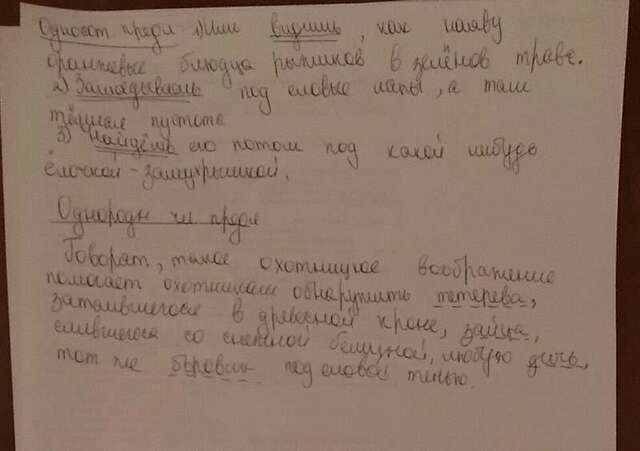 Односост предл 1) Или видишь, как наяву
оранжевые блюдца рыжиков в зелёнов траве.
2) Заглядываешь под еловые лапы, а там
тёмная пустота
3) Найдёшь его потом под какой нибудь
ёлочкой-замухрышкой.
Однородн чл предл
Говорят, такое охотницкое воображение
помогает охотникам обнаружить тетерева,
затаившегося в древесной кроне, зайца,
слившегося со снежной белизной, любую дичь,
тот же боровик под еловой тенью.